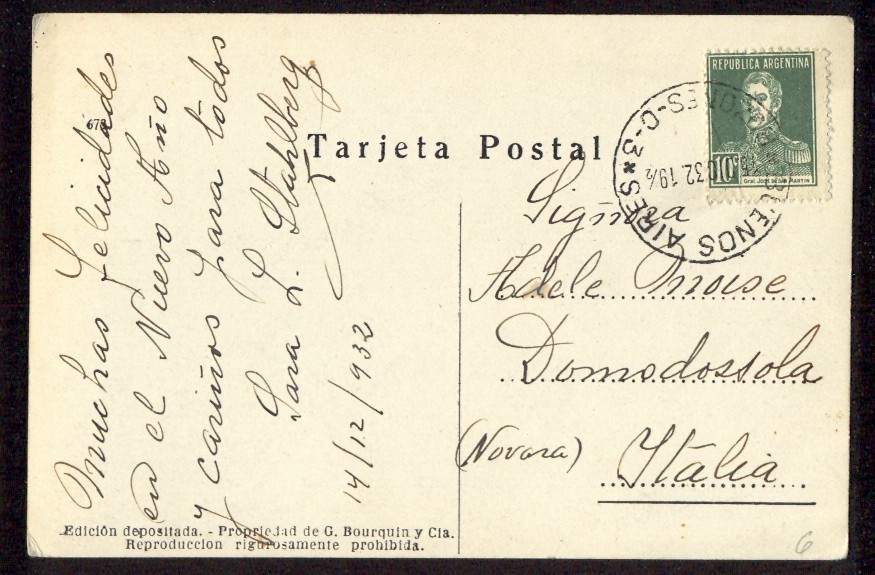 673
Tarjeta Postal
Muchas felicidades
en el Nuevo Año
y cariños para todos
Sara L. Stahlberg
14/12/932
REPUBLICA ARGENTINA
10c
Gral. José de San Martin
BUENOS AIRES * C-3
32 19½
Sigñra
Adele Moise
Domodossola
(Novara) Italia
Edición depositada. - Propriedad de G. Bourquin y Cia.
Reproduccion rigurosamente prohibida.
6